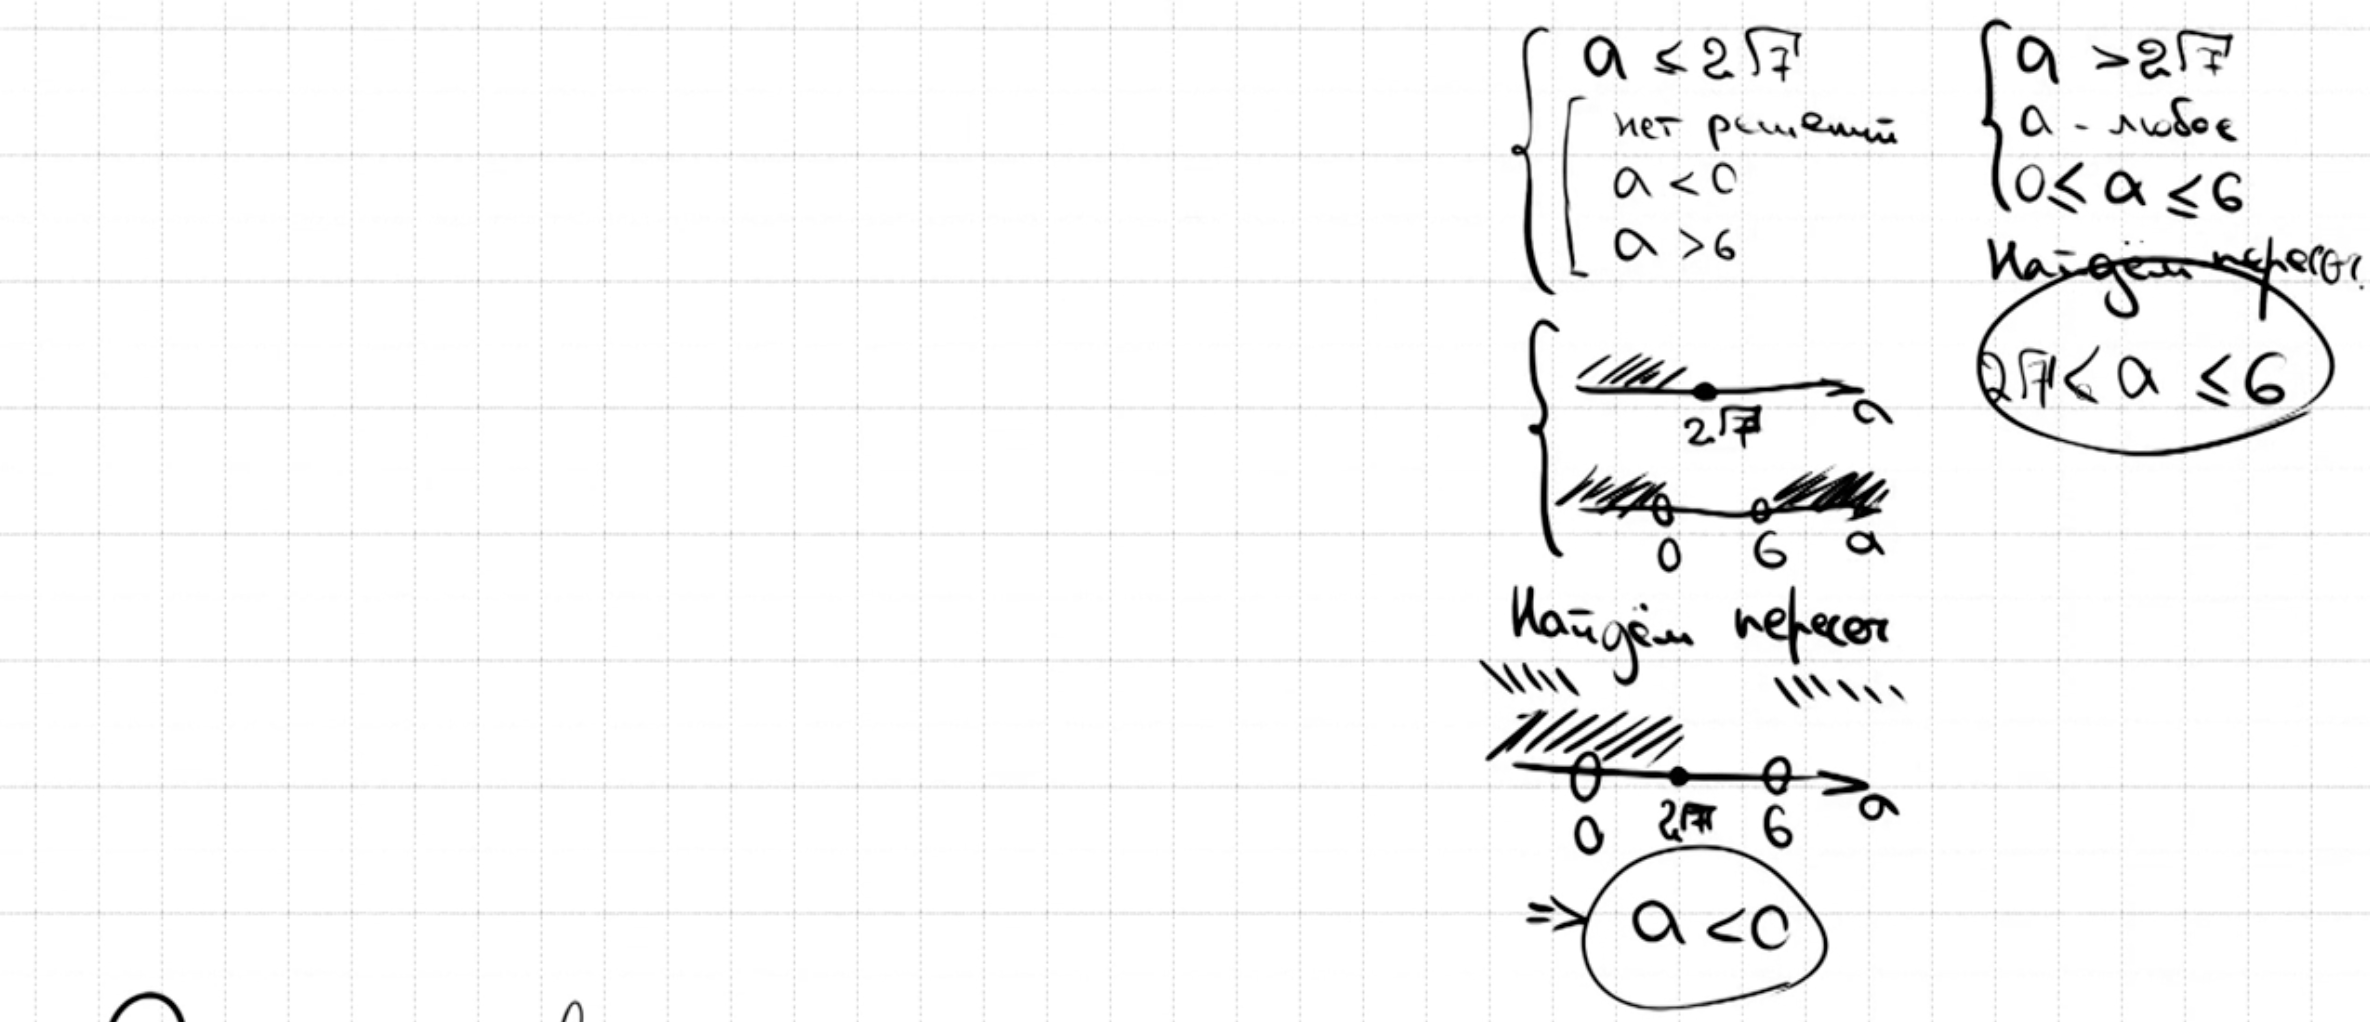 a ≤ 2√7
нет решений
a < 0
a > 6
2√7
a
0 6 a
Найдём пересеч
0 2√7 6 a
⇒ a < 0
a > 2√7
a - любое
0 ≤ a ≤ 6
Найдём пересеч.
2√7 < a ≤ 6